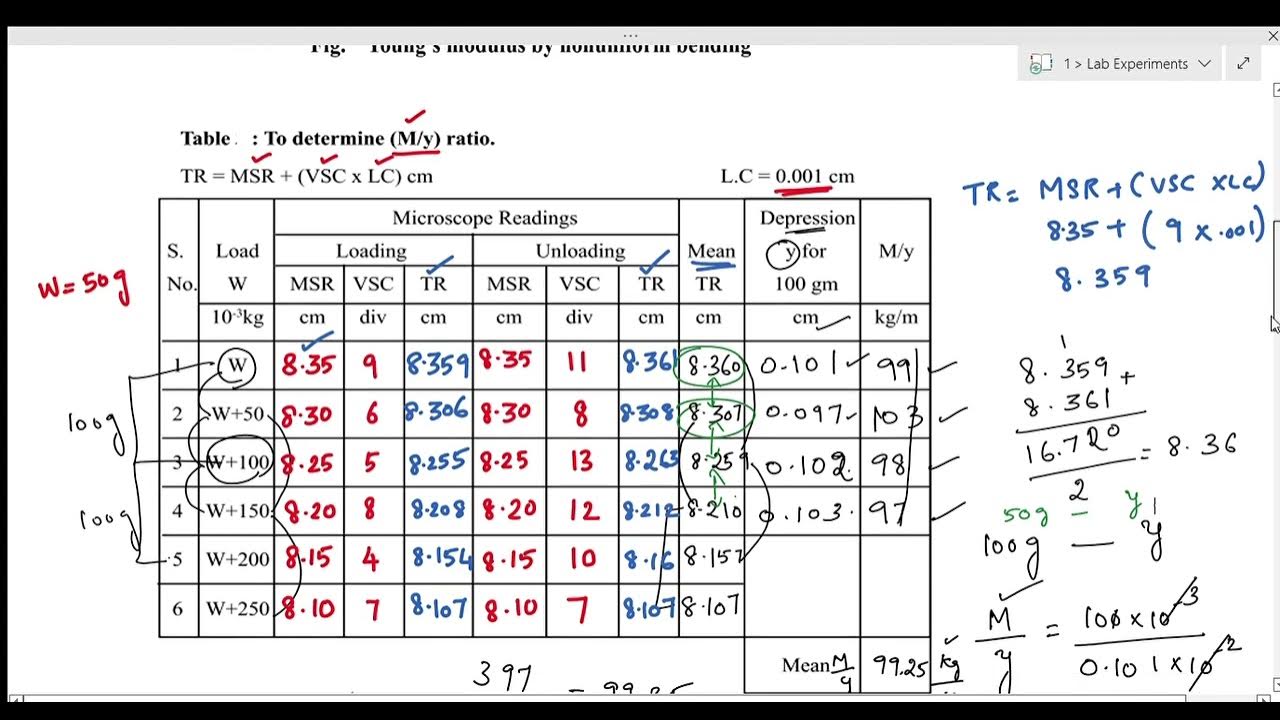 Fig. Young's modulus by nonuniform bending
1 > Lab Experiments
Table : To determine (M/y) ratio.
TR = MSR + (VSC x LC) cm L.C = 0.001 cm
TR = MSR + (VSC x LC)
8.35 + ( 9 x .001)
8.359
W = 50g
Microscope Readings Depression
S. Load Loading Unloading Mean y for M/y
No. W MSR VSC TR MSR VSC TR TR 100 gm
10⁻³kg cm div cm cm div cm cm cm kg/m
1 W 8.35 9 8.359 8.35 11 8.361 8.360 0.101 99
2 W+50 8.30 6 8.306 8.30 8 8.308 8.307 0.097 103
3 W+100 8.25 5 8.255 8.25 13 8.263 8.259 0.102 98
4 W+150 8.20 8 8.208 8.20 12 8.212 8.210 0.103 97
5 W+200 8.15 4 8.154 8.15 10 8.16 8.157
6 W+250 8.10 7 8.107 8.10 7 8.107 8.107
Mean M/y 99.25 kg
100g
100g
1
8.359 +
8.361
16.720 = 8.36
2
50g – y1
100g — y
M/y = 100 x 10⁻³ / 0.101 x 10⁻²
397